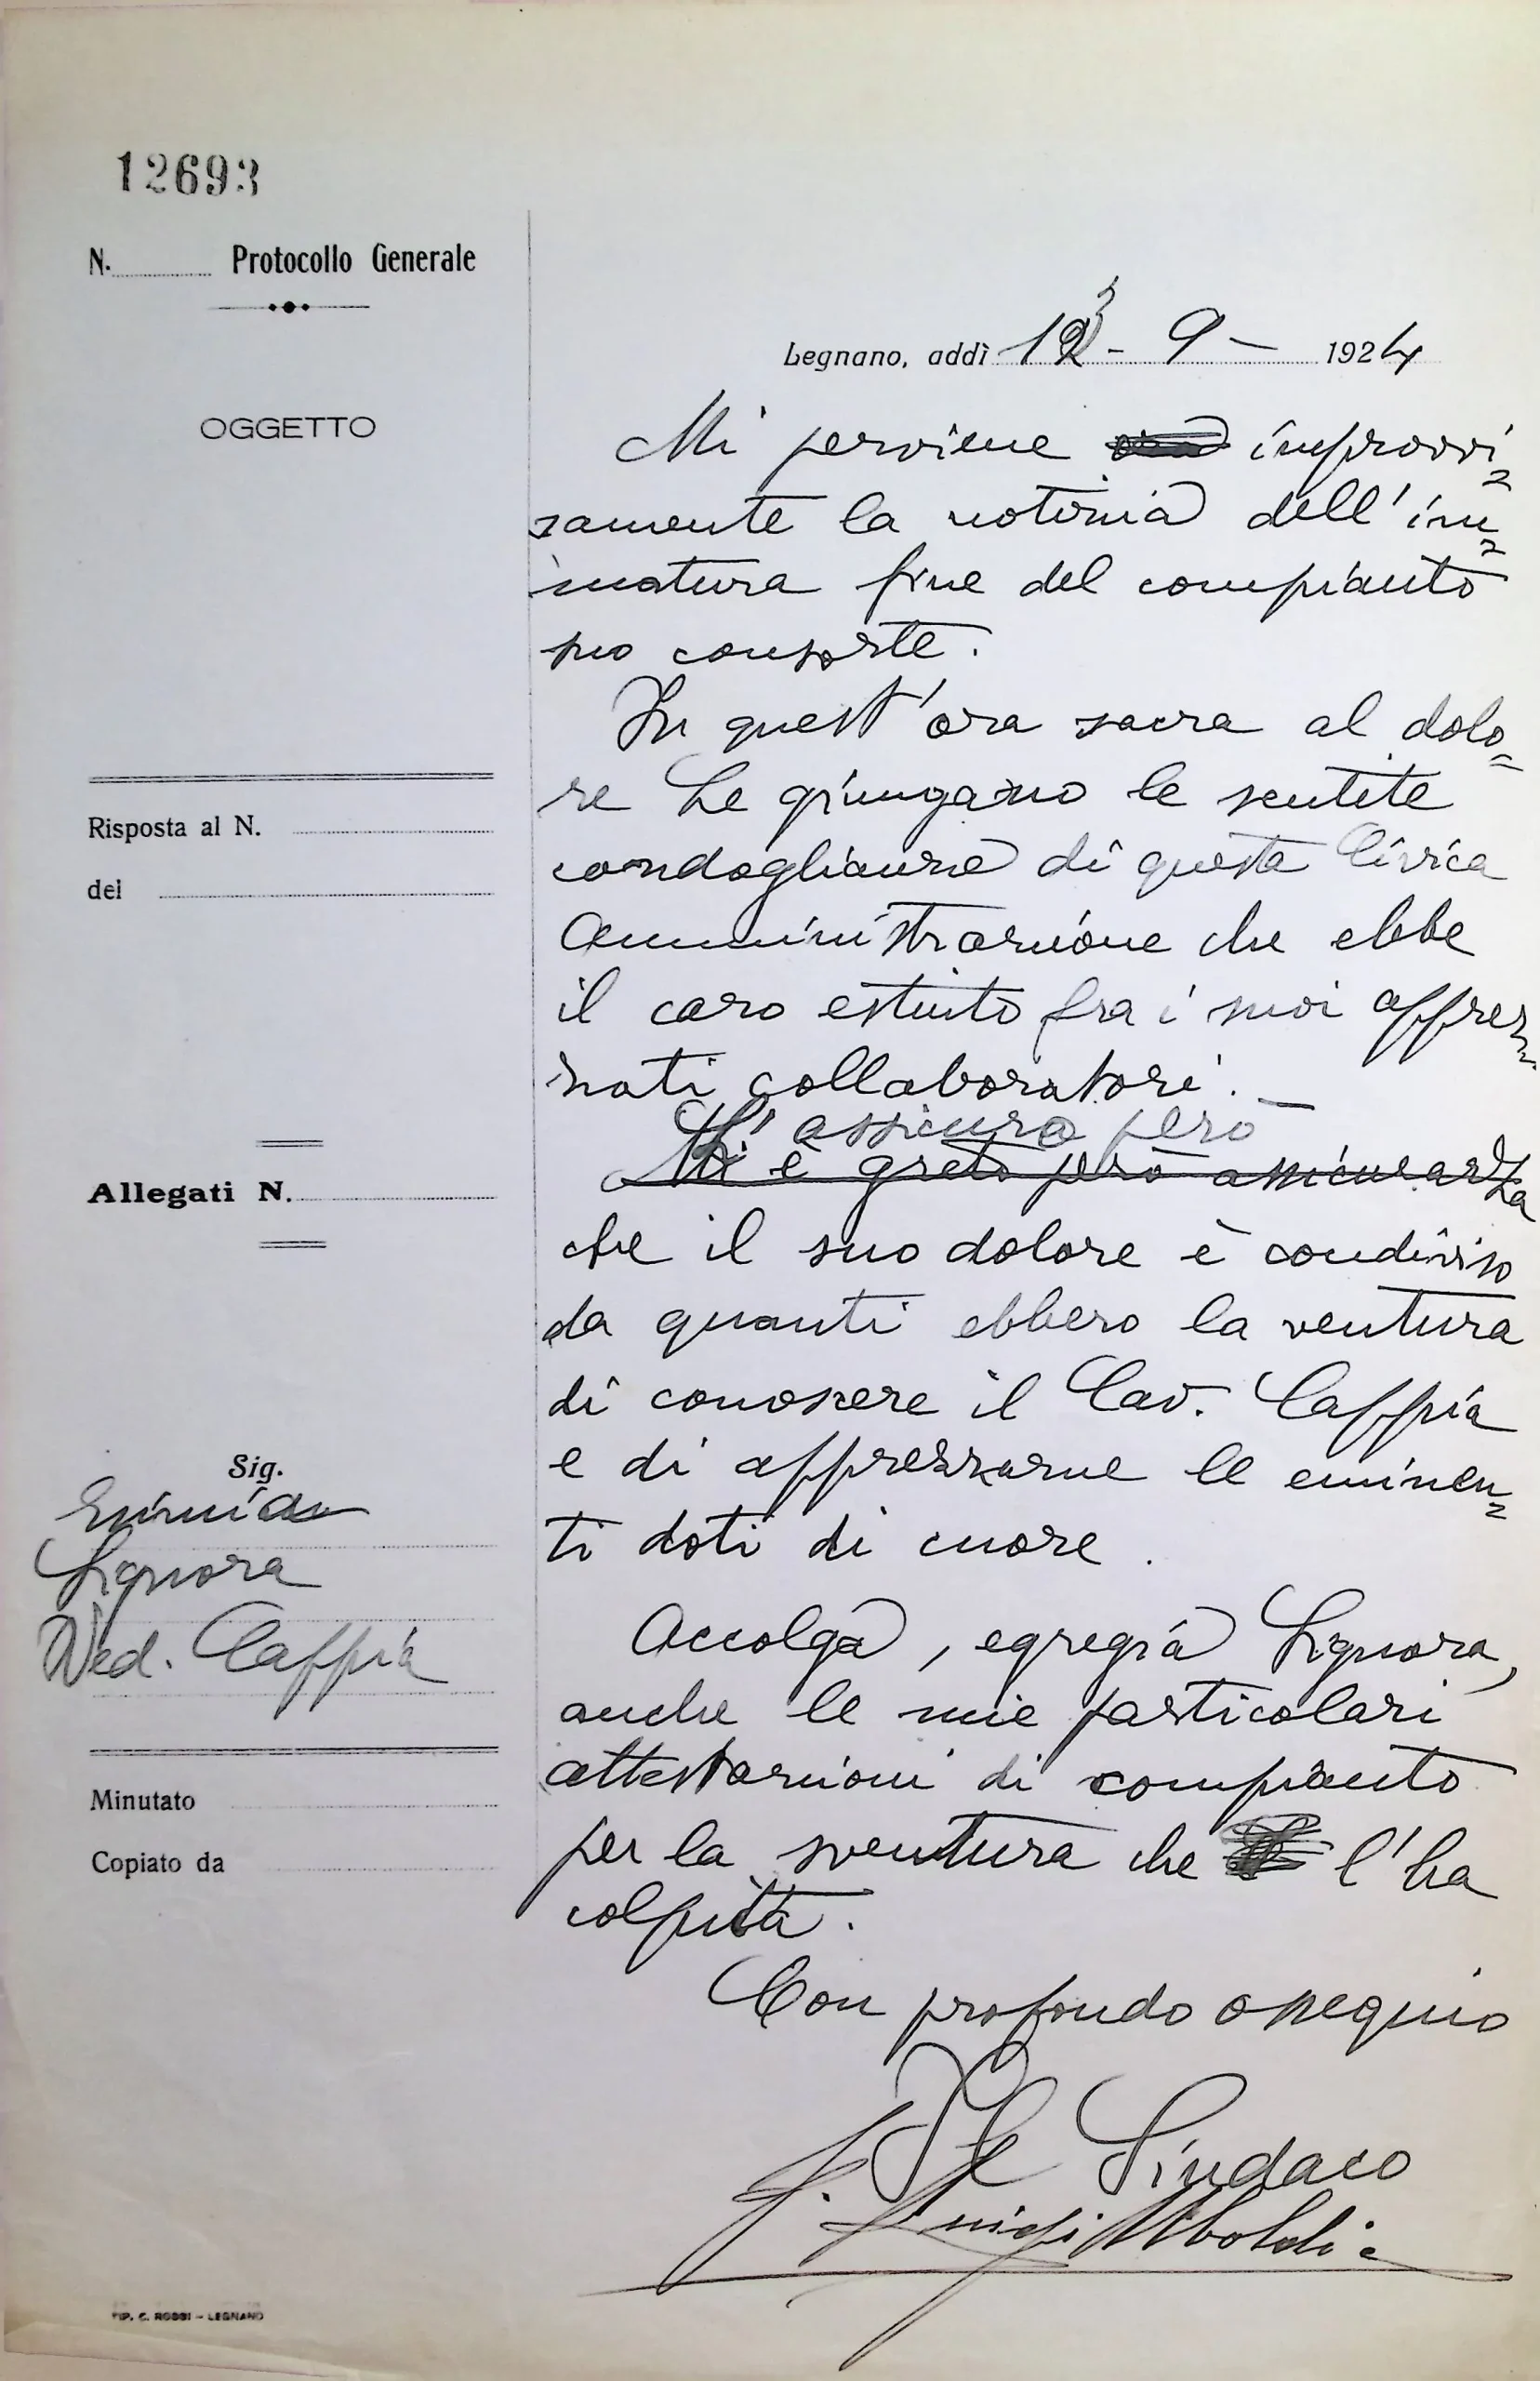 12693
N. Protocollo Generale
Legnano, addì 13 - 9 - 1924
OGGETTO
Mi perviene improvvi=
samente la notizia dell'im=
matura fine del compianto
suo consorte.
In quest'ora sacra al dolo=
re Le giungano le sentite
condoglianze di questa Civica
Amministrazione che ebbe
il caro estinto fra i suoi apprez=
zati collaboratori.
L'assicuro però
Mi è grato però assicurarla
che il suo dolore è condiviso
da quanti ebbero la ventura
di conoscere il Cav. Cappia
e di apprezzarne le eminen=
ti doti di cuore.
Accolga, egregia Signora,
anche le mie particolari
attestazioni di compianto
per la sventura che l'ha
colpita.
Con profondo ossequio
Il Sindaco
f. Luigi Uboldi
Risposta al N.
del
Allegati N.
Sig.
Esimia
Signora
Ved. Cappia
Minutato
Copiato da
TIP. C. ROSSI - LEGNANO